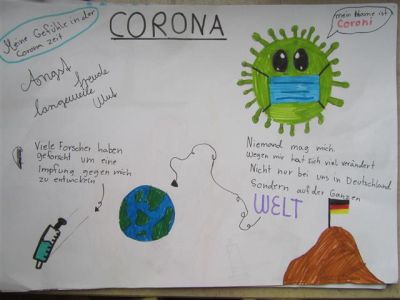 CORONA
Meine Gefühle in der
Corona zeit
Angst
freude
langeweile
Wut
mein Name ist
Coroni
Viele Forscher haben
geforscht um eine
Impfung gegen mich
zu entwickeln
Niemand mag mich.
Wegen mir hat sich viel verändert
Nicht nur bei uns in Deutschland
Sondern auf der Ganzen
WELT